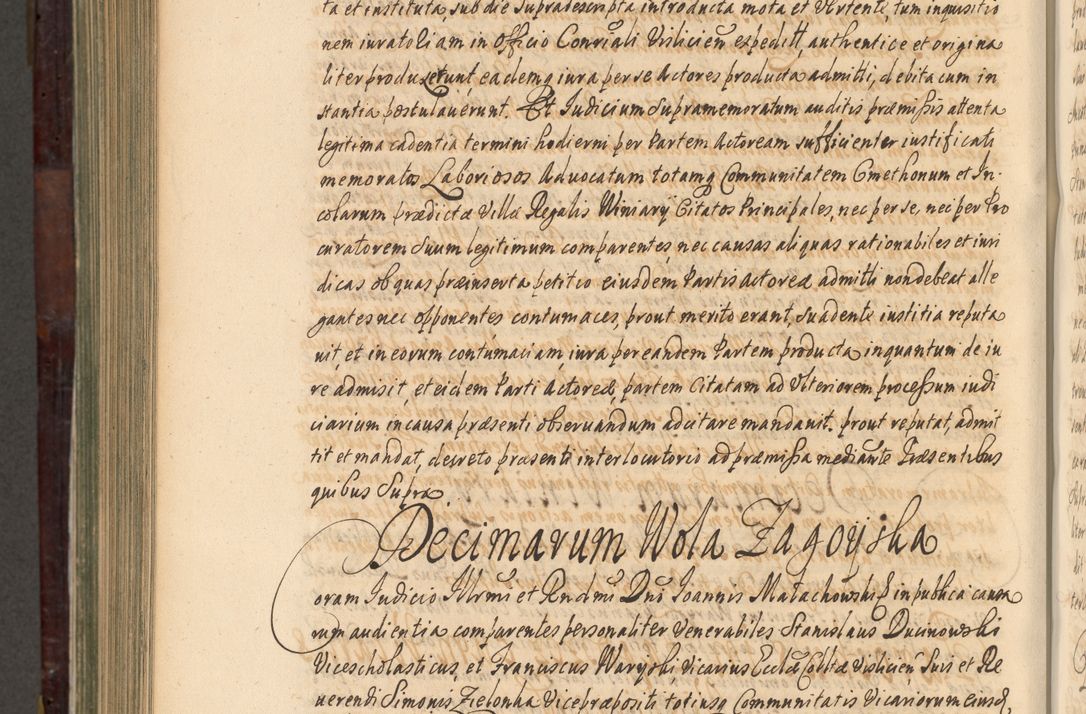 ta et instituta, sub die supradescripta introducta mota et vertente, tum inquisitio
nem iuratoriam in Officio Consiali Vislicien expeditt, authentice et origina
liter produxerunt, eademq iura per se Actores producta admitti, debita cum in
stantia postulauerunt. Et Iudicium supramemoratum auditis præmissis attenta
legitima cadentia termini hodierni per Partem Actoream sufficienter iustificati
memoratos Laboriosos Aduocatum totamq Communitatem Cmethonum et In-
colarum prædictæ Villæ Regalis Winiary Citatos Principales, nec per se, nec per Pro
curatorem suum legitimum comparentes, nec causas aliquas rationabiles et iuri
dicas ob quas præinserta petitio eiusdem Partis Actoreæ admitti non debeat alle
gantes nec opponentes contumaces, prout merito erant, suadente iustitia reputa
uit, et in eorum contumaciam, iura per eandem Partem producta inquantum de iu
re admisit, et eidem Parti Actoreæ, partem Citatam ad Vlteriorem processum iudi
ciarium in causa præsenti obseruandum adcitare mandauit. prout reputat, admit
tit et mandat, decreto præsenti interlocutorio ad præmissa mediante Præsentibus
quibus Supra
Decimarum Wola Zagoyska
Coram Iudicio Illrmi et Rndmi Dni Ioannis Matachowski E in publica causa
rum audientia comparentes personaliter Venerabiles Stanislaus Ducinowski
Vicescholasticus, et Franciscus Waryski, Vicarius Ecclæ Colltæ Vislicien, Suis et Re
uerendi Simonis Zielonka Vicepræpositi totiusq Communitatis Vicariorum eiusd,